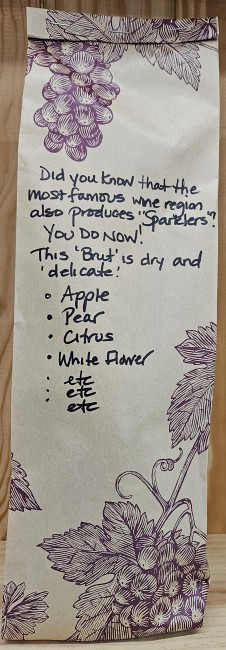 Did you know that the
most famous wine region
also produces "Sparklers"?
You Do Now!
This 'Brut' is dry and
'delicate'.
• Apple
• Pear
• Citrus
• White flower
• etc
• etc
• etc